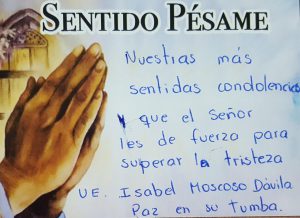 SENTIDO PÉSAME
Nuestras más
sentidas condolencias
y que el Señor
les de fuerza para
superar la tristeza
U.E. Isabel Moscoso Dávila
Paz en su tumba.